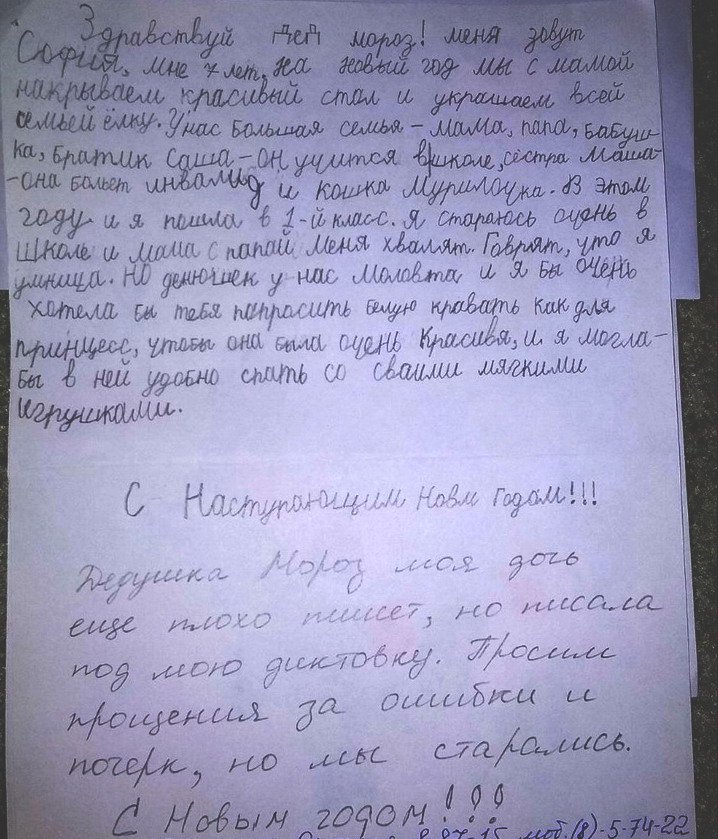 Здравствуй Дед мороз! меня зовут
София, мне 7 лет, На новый год мы с мамой
накрываем красивый стол и украшаем всей
семьей ёлку. У нас большая семья - мама, папа, бабуш-
ка, братик Саша - он учится в школе, сестра Маша-
-она больет инвалид и кошка Мурилочка. В этом
году и я пошла в 1-й класс. Я стараюсь очень в
школе и мама с папай меня хвалят. Говрят, что я
умница. Но денюшек у нас маловта и я бы очень
хотела бы тебя папрасить белую кравать как для
принцесс, чтобы она была очень красивя, и я могла-
бы в ней удобно спать со сваими мягкими
игрушками.
С Наступающим Новм Годом!!!
Дедушка Мороз моя дочь
еще плохо пишет, но писала
под мою диктовку. Просим
прощения за ошибки и
почерк, но мы старались.
С Новым годом!!!
моб.(8)-5-74-22